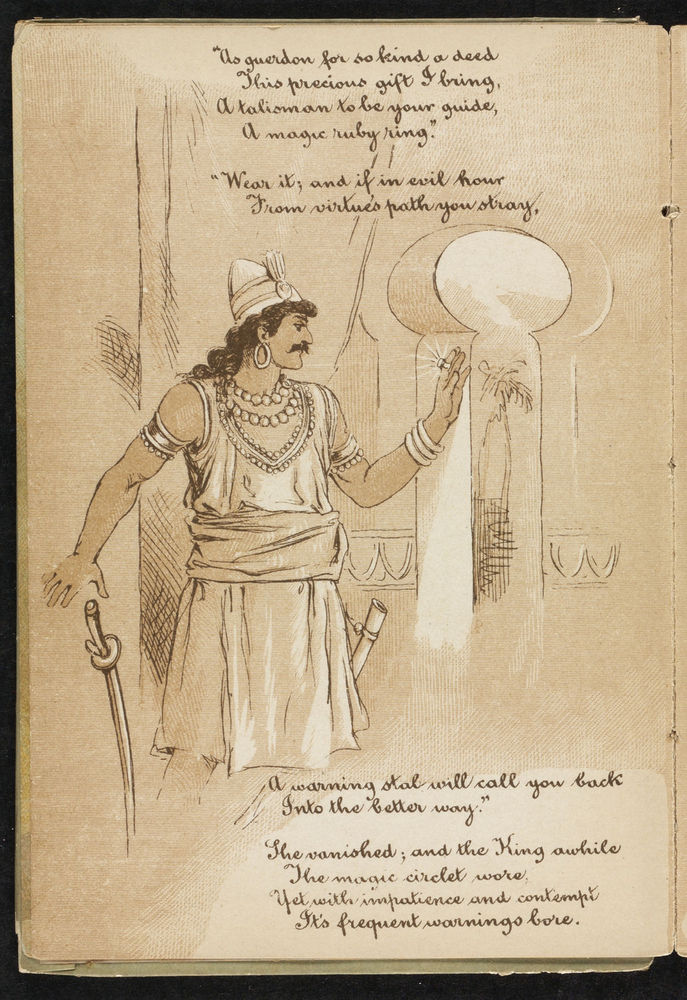 "As guerdon for so kind a deed
This precious gift I bring,
A talisman to be your guide,
A magic ruby ring."
"Wear it; and if in evil hour
From virtue's path you stray,
A warning stab will call you back
Into the better way."
She vanished; and the King awhile
The magic circlet wore,
Yet with impatience and contempt
It's frequent warnings bore.